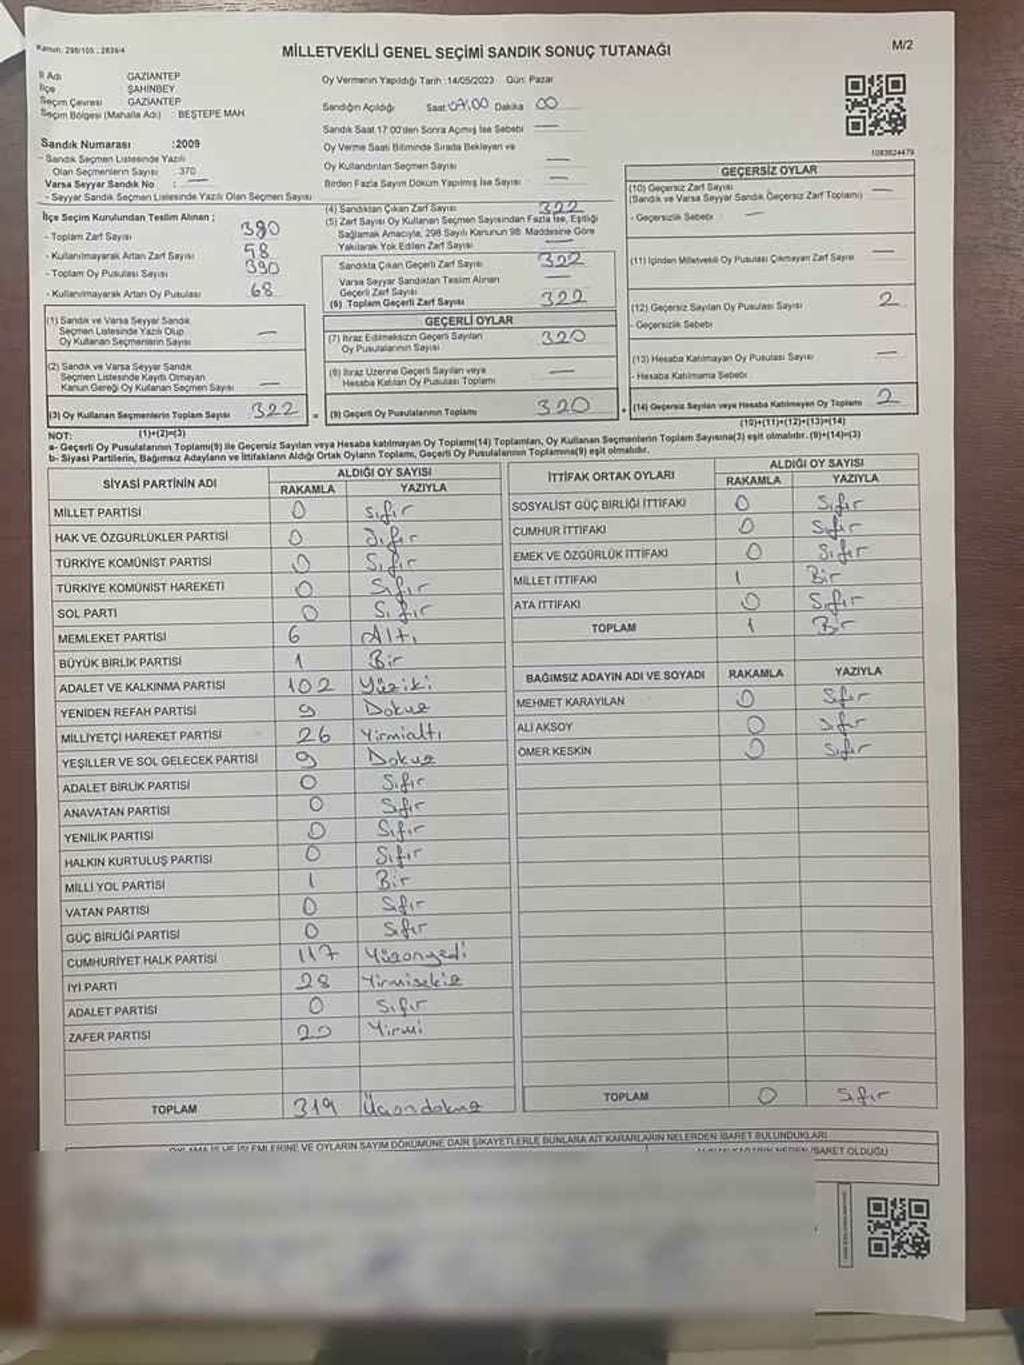 Kanun: 298/105 ; 2839/4
MİLLETVEKİLİ GENEL SEÇİMİ SANDIK SONUÇ TUTANAĞI
M/2
İl Adı : GAZİANTEP
İlçe : ŞAHİNBEY
Seçim Çevresi : GAZİANTEP
Seçim Bölgesi (Mahalle Adı) : BEŞTEPE MAH
Oy Vermenin Yapıldığı Tarih :14/05/2023 Gün: Pazar
Sandığın Açıldığı Saat: 07.00 Dakika 00
Sandık Saat 17:00'den Sonra Açılmış İse Sebebi —
Oy Verme Saati Bitiminde Sırada Bekleyen ve
Oy Kullandırılan Seçmen Sayısı —
Birden Fazla Sayım Döküm Yapılmış İse Sayısı —
1083624479
Sandık Numarası :2009
- Sandık Seçmen Listesinde Yazılı
Olan Seçmenlerin Sayısı : 370
Varsa Seyyar Sandık No : —
- Seyyar Sandık Seçmen Listesinde Yazılı Olan Seçmen Sayısı :
İlçe Seçim Kurulundan Teslim Alınan ;
- Toplam Zarf Sayısı 380
- Kullanılmayarak Artan Zarf Sayısı 58
- Toplam Oy Pusulası Sayısı 390
- Kullanılmayarak Artan Oy Pusulası 68
(1) Sandık ve Varsa Seyyar Sandık
Seçmen Listesinde Yazılı Olup
Oy Kullanan Seçmenlerin Sayısı —
(2) Sandık ve Varsa Seyyar Sandık
Seçmen Listesinde Kayıtlı Olmayan
Kanun Gereği Oy Kullanan Seçmen Sayısı —
(3) Oy Kullanan Seçmenlerin Toplam Sayısı 322
(1)+(2)=(3)
(4) Sandıktan Çıkan Zarf Sayısı 322
(5) Zarf Sayısı Oy Kullanan Seçmen Sayısından Fazla İse, Eşitliği
Sağlamak Amacıyla, 298 Sayılı Kanunun 98. Maddesine Göre
Yakılarak Yok Edilen Zarf Sayısı —
Sandıkta Çıkan Geçerli Zarf Sayısı 322
Varsa Seyyar Sandıktan Teslim Alınan
Geçerli Zarf Sayısı —
(6) Toplam Geçerli Zarf Sayısı 322
GEÇERLİ OYLAR
(7) İtiraz Edilmeksizin Geçerli Sayılan
Oy Pusulalarının Sayısı 320
(8) İtiraz Üzerine Geçerli Sayılan veya
Hesaba Katılan Oy Pusulası Toplamı —
= (9) Geçerli Oy Pusulalarının Toplamı 320
GEÇERSİZ OYLAR
(10) Geçersiz Zarf Sayısı
(Sandık ve Varsa Seyyar Sandık Geçersiz Zarf Toplamı) —
- Geçersizlik Sebebi : —
(11) İçinden Milletvekili Oy Pusulası Çıkmayan Zarf Sayısı —
(12) Geçersiz Sayılan Oy Pusulası Sayısı 2
- Geçersizlik Sebebi :
(13) Hesaba Katılmayan Oy Pusulası Sayısı —
- Hesaba Katılmama Sebebi :
+ (14) Geçersiz Sayılan veya Hesaba Katılmayan Oy Toplamı 2
(10)+(11)+(12)+(13)=(14)
NOT:
a- Geçerli Oy Pusulalarının Toplamı(9) ile Geçersiz Sayılan veya Hesaba katılmayan Oy Toplamı(14) Toplamları, Oy Kullanan Seçmenlerin Toplam Sayısına(3) eşit olmalıdır. (9)+(14)=(3)
b- Siyasi Partilerin, Bağımsız Adayların ve İttifakların Aldığı Ortak Oyların Toplamı, Geçerli Oy Pusulalarının Toplamına(9) eşit olmalıdır.
SİYASİ PARTİNİN ADI ALDIĞI OY SAYISI
RAKAMLA YAZIYLA
MİLLET PARTİSİ 0 Sıfır
HAK VE ÖZGÜRLÜKLER PARTİSİ 0 Sıfır
TÜRKİYE KOMÜNİST PARTİSİ 0 Sıfır
TÜRKİYE KOMÜNİST HAREKETİ 0 Sıfır
SOL PARTİ 0 Sıfır
MEMLEKET PARTİSİ 6 Altı
BÜYÜK BİRLİK PARTİSİ 1 Bir
ADALET VE KALKINMA PARTİSİ 102 Yüziki
YENİDEN REFAH PARTİSİ 9 Dokuz
MİLLİYETÇİ HAREKET PARTİSİ 26 Yirmialtı
YEŞİLLER VE SOL GELECEK PARTİSİ 9 Dokuz
ADALET BİRLİK PARTİSİ 0 Sıfır
ANAVATAN PARTİSİ 0 Sıfır
YENİLİK PARTİSİ 0 Sıfır
HALKIN KURTULUŞ PARTİSİ 0 Sıfır
MİLLİ YOL PARTİSİ 1 Bir
VATAN PARTİSİ 0 Sıfır
GÜÇ BİRLİĞİ PARTİSİ 0 Sıfır
CUMHURİYET HALK PARTİSİ 117 Yüzonyedi
İYİ PARTİ 28 Yirmisekiz
ADALET PARTİSİ 0 Sıfır
ZAFER PARTİSİ 20 Yirmi
TOPLAM 319 Üçyüzondokuz
İTTİFAK ORTAK OYLARI ALDIĞI OY SAYISI
RAKAMLA YAZIYLA
SOSYALİST GÜÇ BİRLİĞİ İTTİFAKI 0 Sıfır
CUMHUR İTTİFAKI 0 Sıfır
EMEK VE ÖZGÜRLÜK İTTİFAKI 0 Sıfır
MİLLET İTTİFAKI 1 Bir
ATA İTTİFAKI 0 Sıfır
TOPLAM 1 Bir
BAĞIMSIZ ADAYIN ADI VE SOYADI RAKAMLA YAZIYLA
MEHMET KARAYILAN 0 Sıfır
ALİ AKSOY 0 Sıfır
ÖMER KESKİN 0 Sıfır
TOPLAM 0 Sıfır
İŞLEMLERİNE VE OYLARIN SAYIM DÖKÜMÜNE DAİR ŞİKAYETLERLE BUNLARA AİT KARARLARIN NELERDEN İBARET BULUNDUKLARI
NEDEN İBARET OLDUĞU